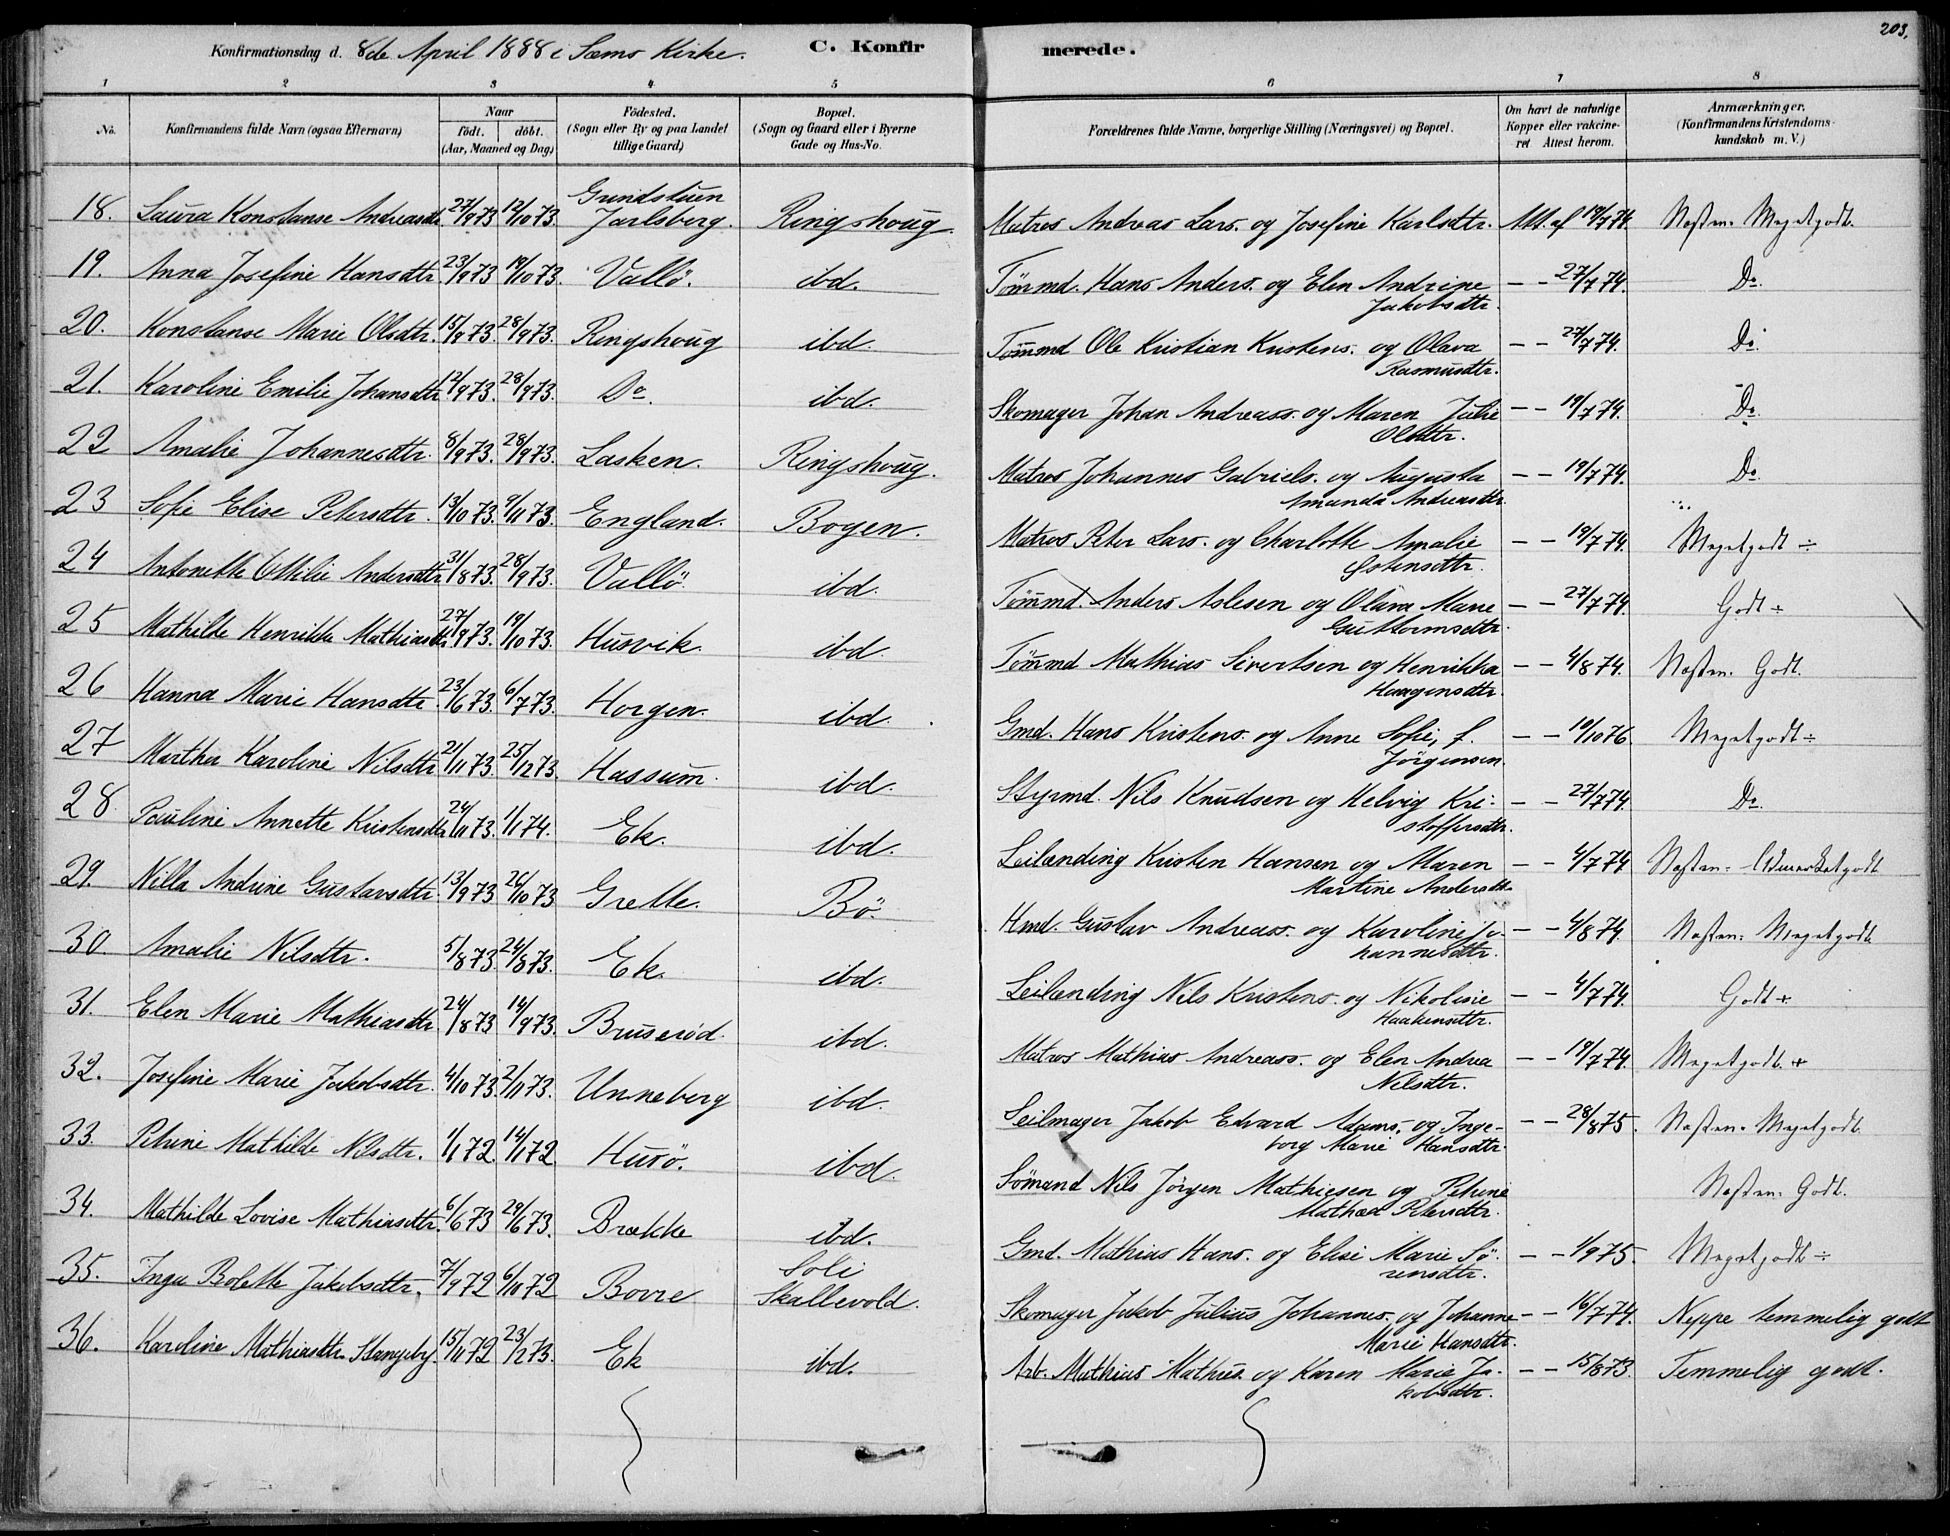 203.
Konfirmationsdag d. 8de April 1888 i Sems Kirke. C. Konfir merede.
1 2 3 4 5 6 7 8
No. Konfirmandens fulde Navn (ogsaa Efternavn) Naar födt. döbt. (Aar, Maaned og Dag) Födested. (Sogn eller By og paa Landet tillige Gaard) Bopæl. (Sogn og Gaard eller i Byerne Gade og Hus-No. Forældrenes fulde Navne, borgerlige Stilling (Næringsvei) og Bopæl. Om havt de naturlige Kopper eller vakcineret Attest herom. Anmærkninger. (Konfirmandens Kristendomskundskab m. V.)
18. Laura Konstanse Andreasdtr. 27/9 73 12/10 73. Grindstuen Jarlsberg. Ringshoug. Matros Andreas Lars. og Josefine Karlsdtr. Att. af 19/7 74. Næsten Megetgodt.
19. Anna Josefine Hansdtr. 23/9 73 19/10 73. Vallö. ibd. Tömmd. Hans Anders. og Elen Andrine Jakobsdtr. — — 27/7 74. Do.
20. Konstanse Marie Olsdtr. 15/9 73. 28/9 73. Ringshoug ibd. Tömmd Ole Kristian Kristens. og Olava Rasmusdtr. — — 27/7 74. Do.
21. Karoline Emilie Johansdtr. 12/9 73. 28/9 73. Do. ibd. Skomager Johan Andreass. og Maren Julie Olsdtr. — — 19/7 74. Do.
22 Amalie Johannesdtr. 8/9 73. 28/9 73. Lasken. Ringshoug. Matros Johannes Gabriels. og Augusta Amanda Andreasdtr. — — 19/7 74. Do.
23 Sofie Elise Petersdtr. 13/10 73. 9/11 73. England. Bogen. Matros Peter Lars. og Charlotte Amalie Østensdtr. — — 19/7 74. Megetgodt ÷
24 Antonette Ottilie Andersdtr. 31/8 73. 28/9 73. Vallö. ibd. Tömmd. Anders Aslesen og Olava Marie Guttormsdtr. — — 27/7 74. Godt +
25 Mathilde Henrikke Mathiasdtr. 27/9 73. 19/10 73. Husvik. ibd. Tömmd Mathias Sivertsen og Henrikka Haagensdtr. — — 4/8 74. Næsten Godt.
26 Hanna Marie Hansdtr. 23/6 73. 6/7 73. Horgen. ibd. Gmd. Hans Kristens. og Anne Sofie, f. Jörgensen. — — 19/10 76. Megetgodt ÷
27 Martha Karoline Nilsdtr. 21/11 73. 25/12 73. Hassum. ibd. Styrmd. Nils Knudsen og Helvig Kristoffersdtr. — — 27/7 74. Do.
28 Pauline Annette Kristensdtr. 24/11 73. 1/1 74. Ek. ibd. Leilænding Kristen Hansen og Maren Martine Andersdtr. — — 4/7 74 Næsten Udmærketgodt
29. Nilla Andrine Gustavsdtr. 13/9 73 26/10 73 Grette. Bö. Hmd. Gustav Andreass. og Karoline Johannesdtr. — — 4/8 74. Næsten Megetgodt.
30. Amalie Nilsdtr. 5/8 73. 24/8 73. Ek. ibd. Leilænding Nils Kristens. og Nikoline Haakensdtr. — — 4/7 74. Godt +
31. Elen Marie Mathiasdtr. 24/8 73 14/9 73. Bruserød. ibd. Matros Mathias Andreass. og Elen Andrea Nilsdtr. — — 19/7 74. Megetgodt. +
32. Josefine Marie Jakobsdtr. 4/10 73. 2/11 73. Unneberg ibd. Seilmager Jakob Edvard Adams. og Ingeborg Marie Hansdtr. — — 28/8 75. Næsten Megetgodt.
33. Petrine Mathilde Nilsdtr. 1/1 72. 14/1 72 Husö. ibd. Sömand Nils Jörgen Mathiesen og Petrine Mathea Petersdtr. Næsten Godt.
34. Mathilde Lovise Mathiasdtr. 6/6 73 29/6 73. Brække ibd. Gmd. Mathias Hans. og Elise Marie Sörensdtr. — — 1/9 75. Megetgodt ÷
35. Inga Bolette Jakobsdtr. 7/9 72 6/10 72 Bovre Soli Skallevold. Skomager Jakob Julius Johannes. og Johanne Marie Hansdtr. — — 16/7 74. Neppe temmelig godt
36. Karoline Mathiasdtr. Stangeby 15/11 72 23/2 73. Ek ibd. Arb. Mathias Mathis. og Karen Marie Jakobsdtr. — — 15/8 73. Temmelig godt.